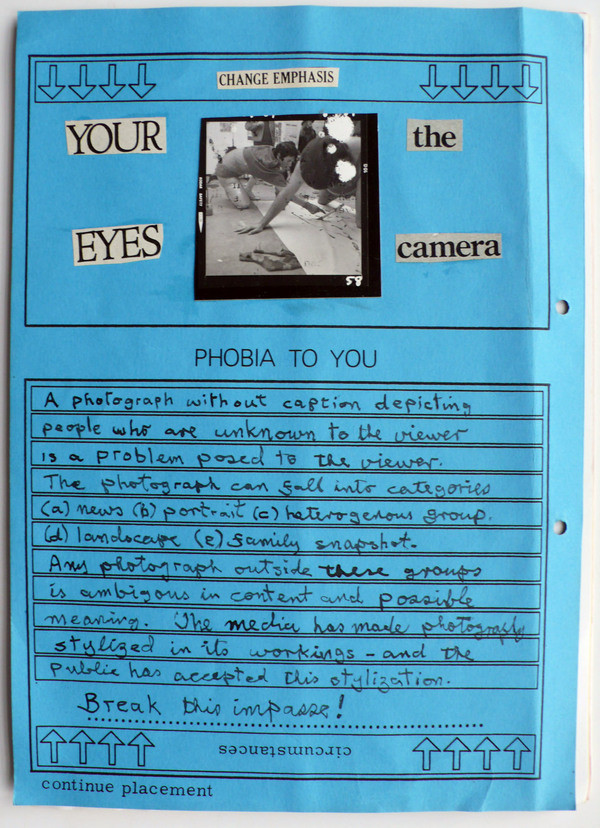 CHANGE EMPHASIS
YOUR the
EYES camera
58
PHOBIA TO YOU
A photograph without caption depicting
people who are unknown to the viewer
is a problem posed to the viewer.
The photograph can fall into categories
(a) news (b) portrait (c) heterogenous group.
(d) landscape (e) family snapshot.
Any photograph outside these groups
is ambigous in content and possible
meaning. The media has made photography
stylized in its workings - and the
public has accepted this stylization.
Break this impasse!
circumstances
continue placement